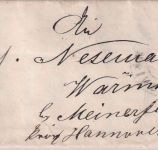 An
Nesema
Wärm
by Meinerf
Prov Hannover